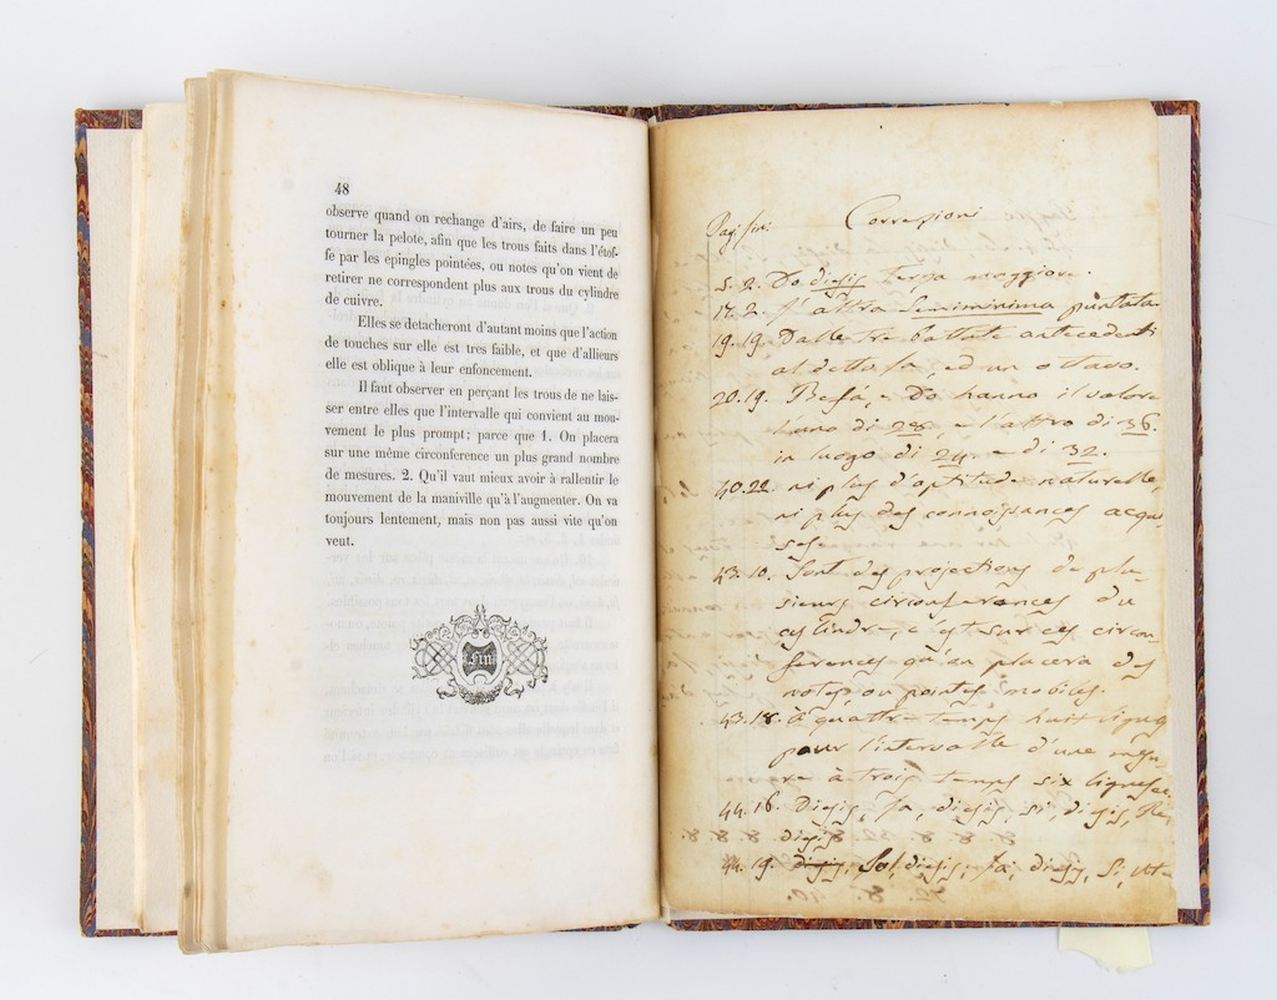 48
observe quand on rechange d'airs, de faire un peu
tourner la pelote, afin que les trous faits dans l'étof-
fe par les epingles pointées, ou notes qu'on vient de
retirer ne correspondent plus aux trous du cylindre
de cuivre.
Elles se detacheront d'autant moins que l'action
de touches sur elle est tres faible, et que d'allieurs
elle est oblique à leur enfoncement.
Il faut observer en perçant les trous de ne lais-
ser entre elles que l'intervalle qui convient au mou-
vement le plus prompt; parce que 1. On placera
sur une même circonference un plus grand nombre
de mesures. 2. Qu'il vaut mieux avoir à rallentir le
mouvement de la maniville qu'à l'augmenter. On va
toujours lentement, mais non pas aussi vite qu'on
veut.
Fin
Correzioni
5. 2. Do diesis terza maggiore.
17. 2. l'altra Semiminima puntata
19. 19. Dalle tre battute antecedenti
al detto fa, ed un ottavo.
20. 19. Do hanno il valore
l'uno di 28, e l'altro di 36.
in luogo di 24. e di 32.
40. 22. ni plus d'aptitude naturelle,
ni plus des connoissances acqui
ses
43. 10. Sont des projections de plu-
sieurs circonferences du
cylindre, c'est sur ces circon-
ferences qu'on placera des
notes ou pointes mobiles.
43. 18. à quattre temps huit lignes
pour l'intervalle d'une mesu-
re à trois temps six lignes
44. 16. Diesis, fa, diesis, si, diesis, Re,
diesis
44. 19. Sol, diesis, fa, diesis, Si, ut